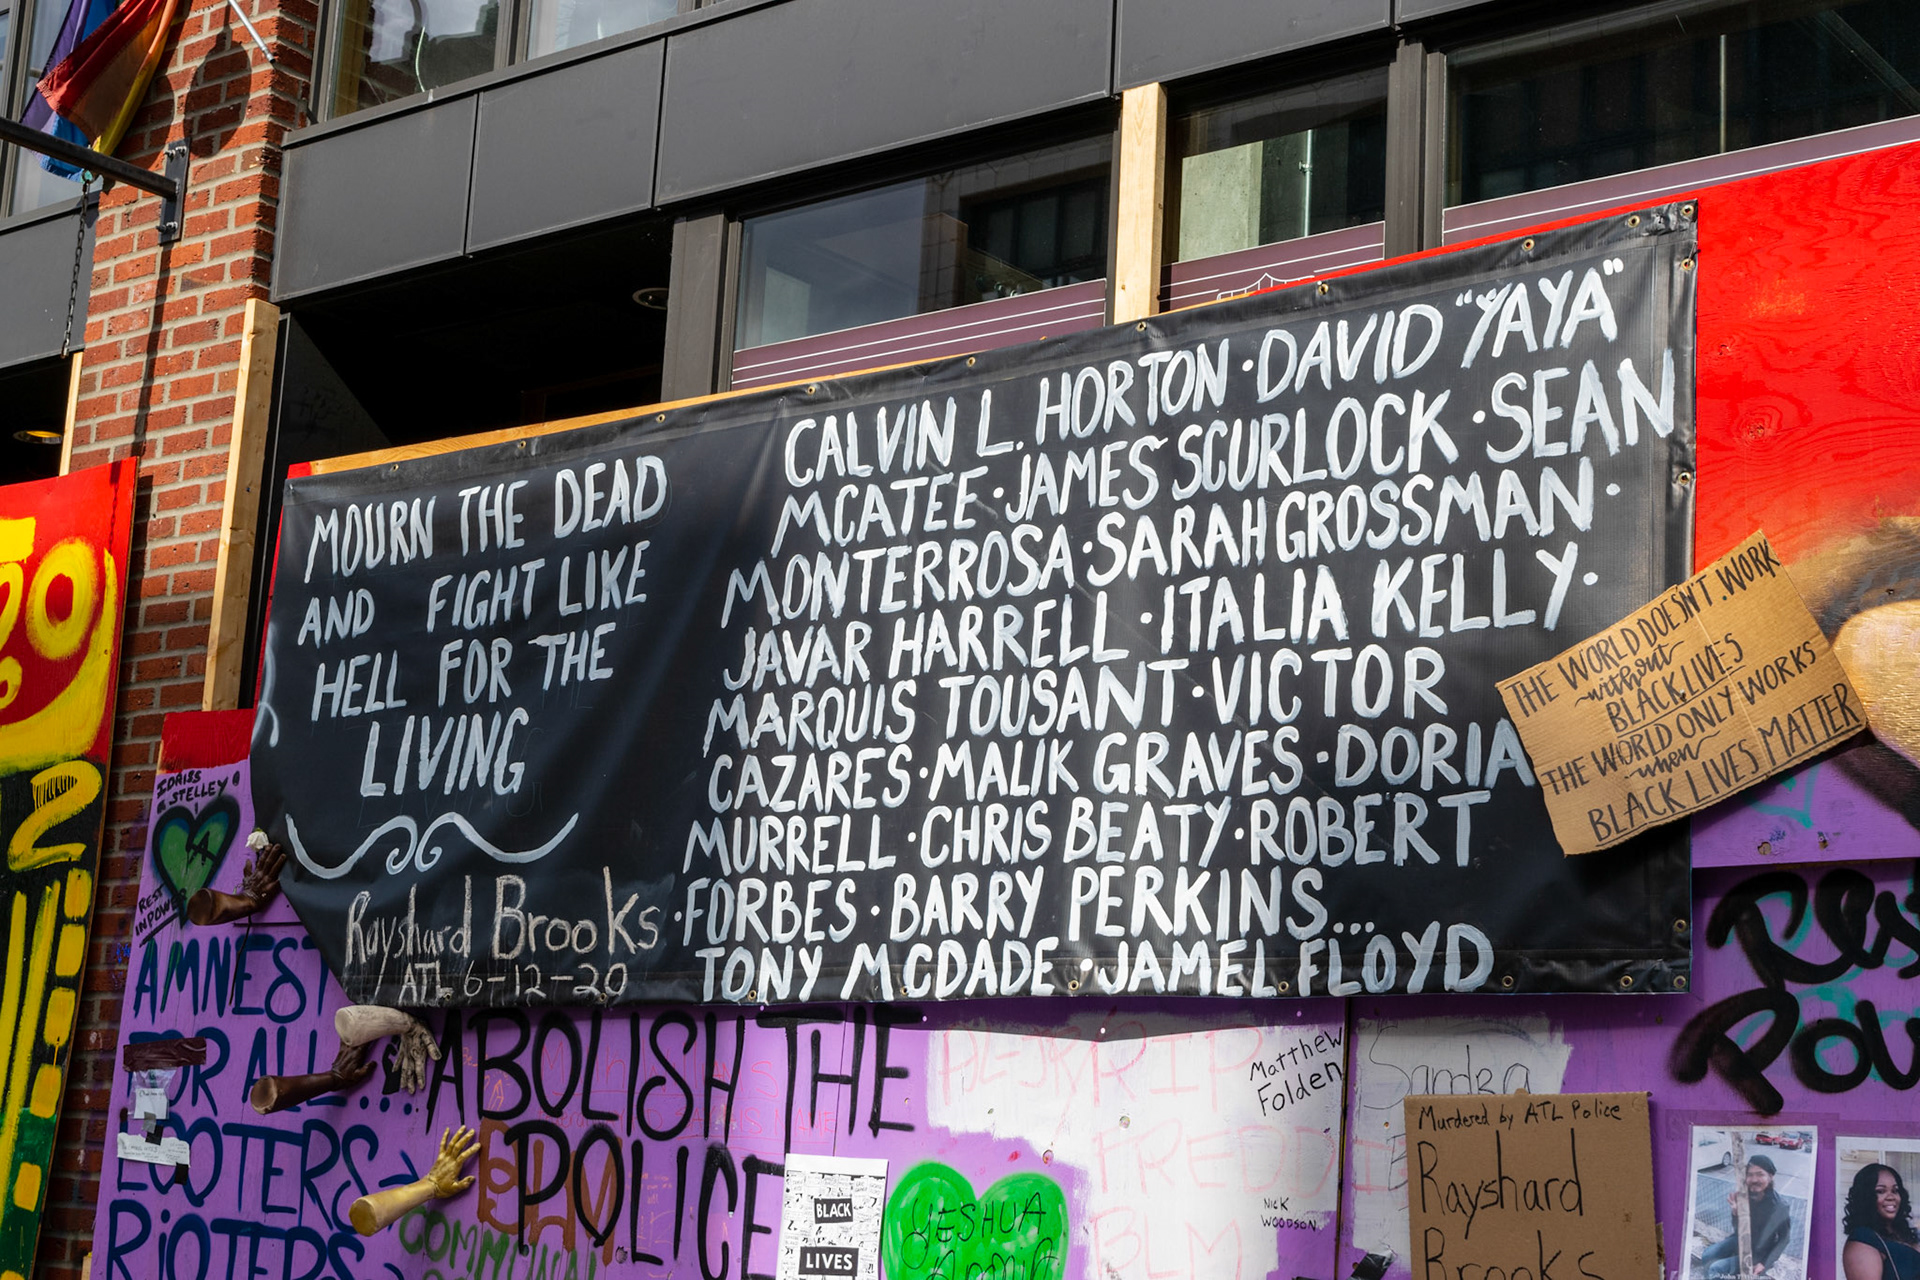 MOURN THE DEAD
AND FIGHT LIKE
HELL FOR THE
LIVING
Rayshard Brooks
ATL 6-12-20
CALVIN L. HORTON · DAVID "YAYA"
MCATEE · JAMES SCURLOCK · SEAN
MONTERROSA · SARAH GROSSMAN ·
JAVAR HARRELL · ITALIA KELLY ·
MARQUIS TOUSANT · VICTOR
CAZARES · MALIK GRAVES · DORIA
MURRELL · CHRIS BEATY · ROBERT
· FORBES · BARRY PERKINS...
TONY MCDADE · JAMEL FLOYD
THE WORLD DOESN'T WORK
without
BLACK LIVES
THE WORLD ONLY WORKS
when
BLACK LIVES MATTER
IDRISS
STELLEY
REST
IN POWER
AMNEST
FOR ALL...
LOOTERS
RIOTERS
ABOLISH THE
POLICE
COMMUN
BLACK
LIVES
YESHUA
RIP
FREDDIE
BLM
Matthew
Folden
NICK
WOODSON
Sandra
Murdered by ATL Police
Rayshard
Brooks
Rest
Pow